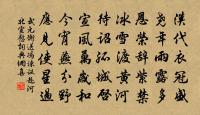 漢代衣冠盛
堯年雨露多
恩榮辭紫禁
冰雪渡黃河
待詔孤城啟
宣風萬嶺和
今宵燕分野
應見使星過
武元衡送馮諫議赴河
北宣慰詞典網集